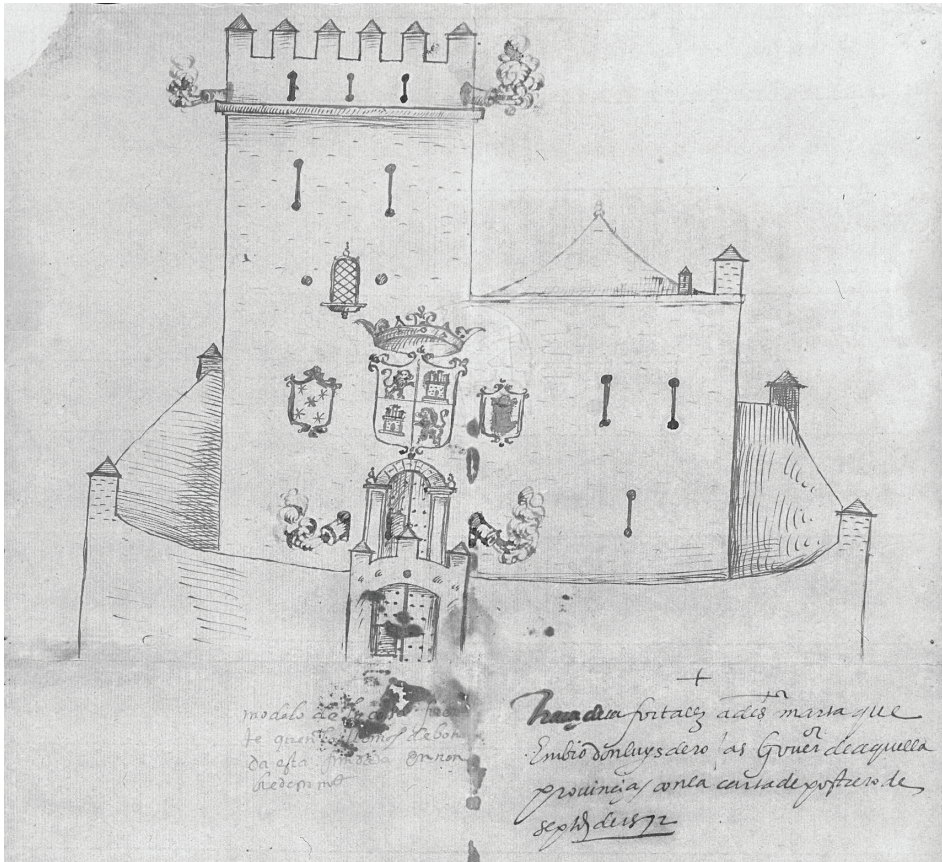 modelo de la
te quen
da esta en nom
bre de su m
+
Traça de la fortaleza de s.ta marta que
Embio don luys de rojas Gouer.or de aquella
prouincia / con la carta de postrero de
sept.e de 1572